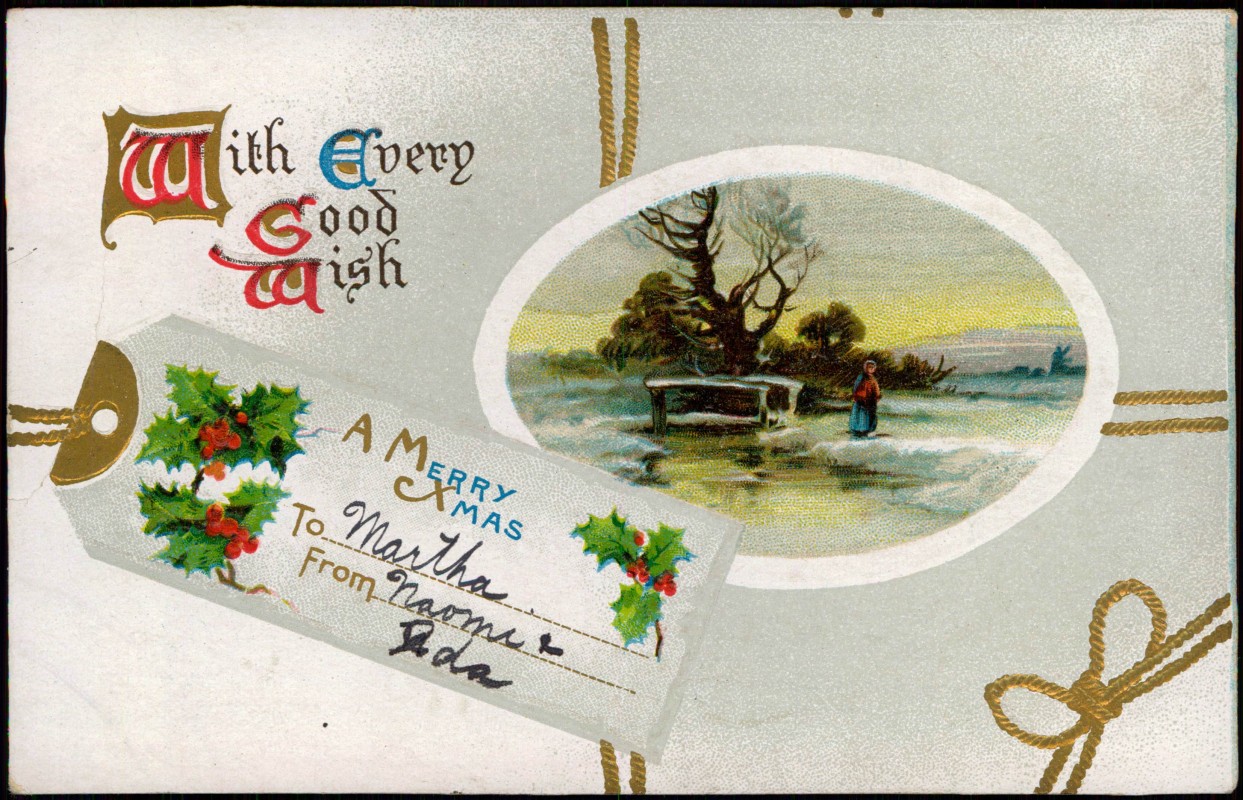 With Every
Good
Wish
A MERRY
XMAS
To Martha.
From Naomi &
Ada